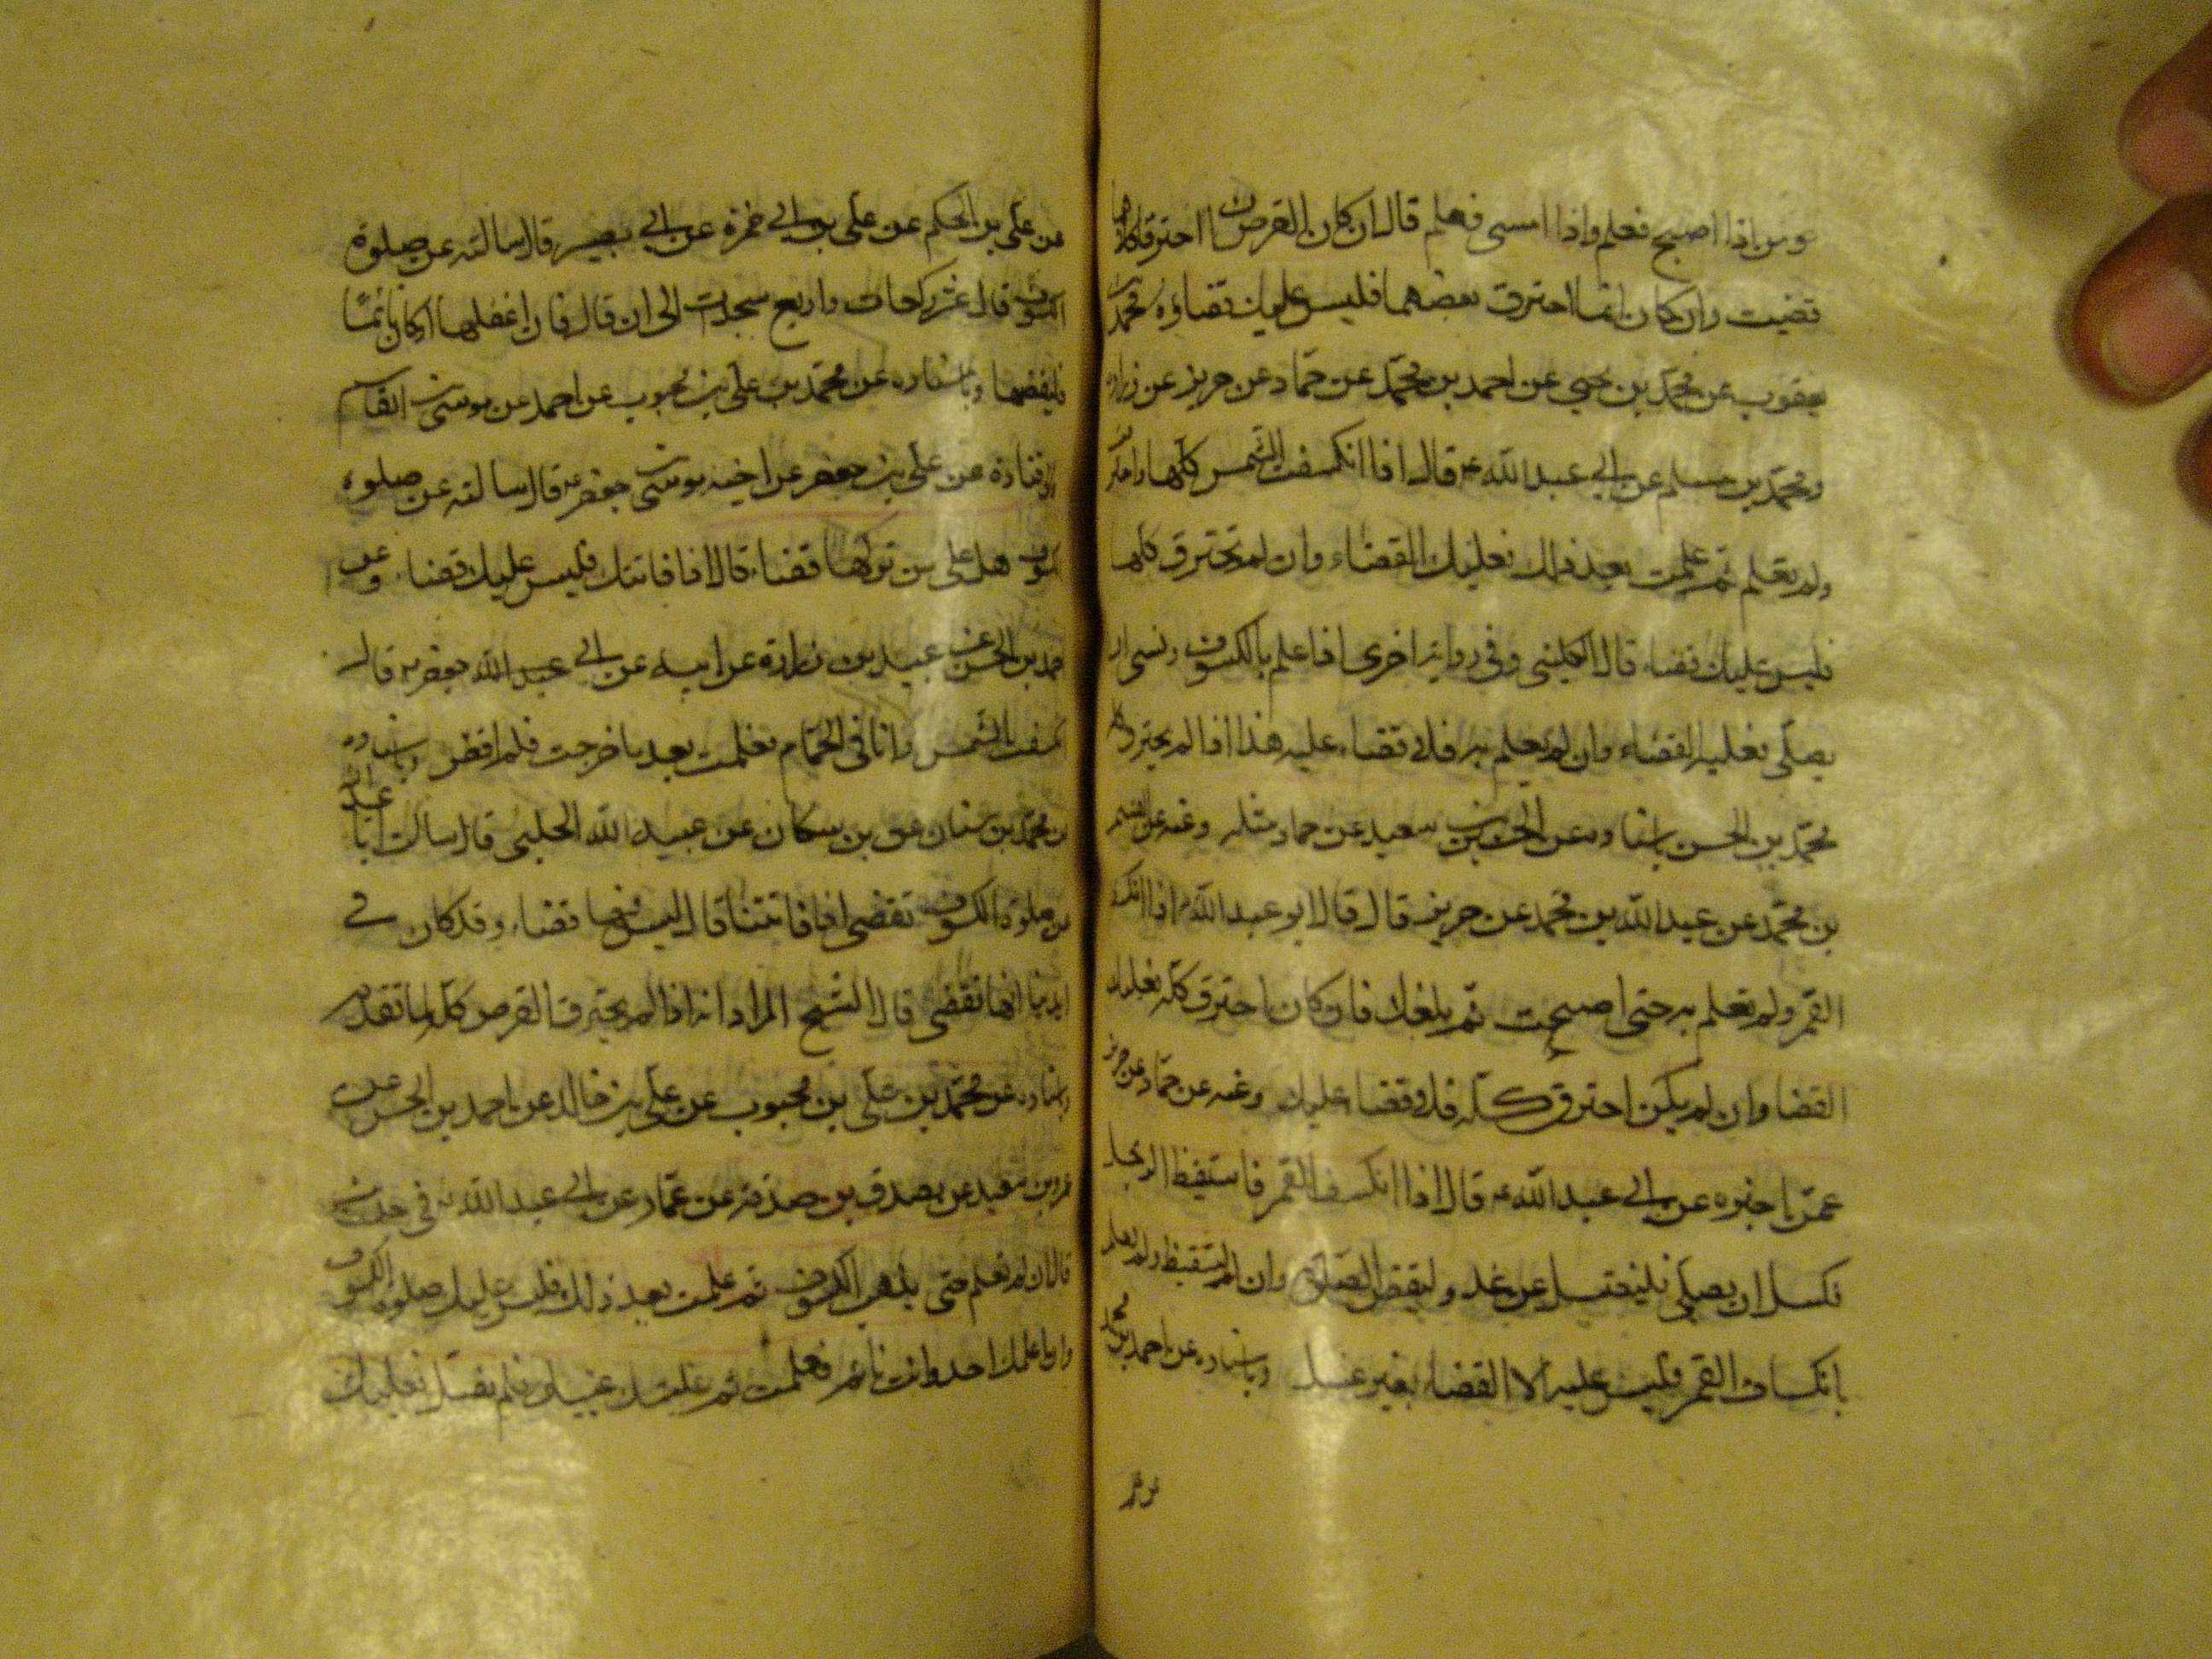 يومن اذا اصبح فعلم واذا امسى فعلم قال ان كان القرصان احترقا كلاهما
قضيت وان كان انما احترق بعضهما فليس عليك قضاؤه محمد بن
يعقوب عن محمد بن يحيى عن احمد بن محمد عن حماد عن حريز عن زرارة
ومحمد بن مسلم عن ابي عبد الله ع قال اذا انكسفت الشمس كلها واحترقت
ولم تعلم ثم علمت بعد ذلك فعليك القضاء وان لم تحترق كلها
فليس عليك قضاء قال الكليني وفي رواية اخرى اذا علم بالكسوف ونسي ان
يصلي فعليه القضاء وان لم يعلم به فلا قضاء عليه هذا اذا لم يحترق كله
محمد بن الحسن باسناده عن الحسين بن سعيد عن حماد مثله وعنه عن النضر
بن محمد عن عبد الله بن محمد عن حريز قال قال ابو عبد الله ع اذا انكسف
القمر ولم تعلم به حتى اصبحت ثم بلغك فان كان احترق كله فعليك
القضا وان لم يكن احترق كله فلا قضا عليك وعنه عن حماد عن حريز
عمن اخبره عن ابي عبد الله ع قال اذا انكسف القمر فاستيقظ الرجل
فكسل ان يصلي فليغتسل من غد وليقض الصلوة وان لم يستيقظ ولم يعلم
بانكساف القمر فليس عليه الا القضاء بغير غسل وباسناده عن احمد بن محمد
عن علي بن الحكم عن علي بن ابي حمزة عن ابي بصير قال سالته عن صلوة
الكسوف قال عشر ركعات واربع سجدات الى ان قال فان اغفلها او كان نائما
فليقضها وباسناده عن محمد بن علي بن محبوب عن احمد عن موسى بن القاسم
وابي قتادة عن علي بن جعفر عن اخيه موسى بن جعفر ع قال سالته عن صلوة
الكسوف هل على من تركها قضاء قال اذا فاتتك فليس عليك قضاء وعن
احمد بن الحسن عن عبيد بن زرارة عن ابيه عن ابي عبد الله جعفر ع قال
انكسفت الشمس وانا في الحمام فعلمت بعد ما خرجت فلم اقض وباسناده
عن محمد بن سنان عن بن مسكان عن عبيد الله الحلبي قال سالت ابا عبد الله
عن صلوة الكسوف تقضى اذا فاتتنا قال ليس فيها قضاء وقد كان في
ايدينا انها تقضى قال الشيخ المراد انه اذا لم يحترق القرص كله لما تقدم
وباسناده عن محمد بن علي بن محبوب عن علي بن خالد عن احمد بن الحسن عن
عمرو بن سعيد عن مصدق بن صدقة عن عمار عن ابي عبد الله ع في حديث
قال ان لم تعلم حتى يذهب الكسوف ثم علمت بعد ذلك فليس عليك صلوة الكسوف
وان اعلمك احد وانت نائم فعلمت ثم غلبتك عينك فلم تصل فعليك